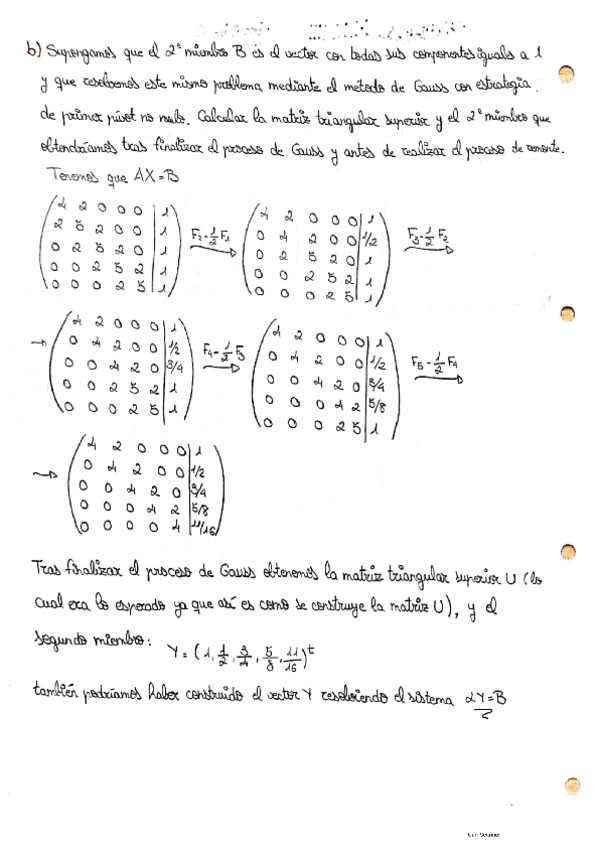 b) Supongamos que el 2º miembro B es el vector con todas sus componentes iguales a 1
y que resolvemos este mismo problema mediante el método de Gauss con estrategia
de primer pivot no nulo. Calcular la matriz triangular superior y el 2º miembro que
obtendríamos tras finalizar el proceso de Gauss y antes de realizar el proceso de remonte.
Tenemos que AX=B
4 2 0 0 0 | 1
2 5 2 0 0 | 1
0 2 5 2 0 | 1
0 0 2 5 2 | 1
0 0 0 2 5 | 1
F2-1/2 F1
4 2 0 0 0 | 1
0 4 2 0 0 | 1/2
0 2 5 2 0 | 1
0 0 2 5 2 | 1
0 0 0 2 5 | 1
F3-1/2 F2
4 2 0 0 0 | 1
0 4 2 0 0 | 1/2
0 0 4 2 0 | 3/4
0 0 2 5 2 | 1
0 0 0 2 5 | 1
F4-1/2 F3
4 2 0 0 0 | 1
0 4 2 0 0 | 1/2
0 0 4 2 0 | 3/4
0 0 0 4 2 | 5/8
0 0 0 2 5 | 1
F5-1/2 F4
4 2 0 0 0 | 1
0 4 2 0 0 | 1/2
0 0 4 2 0 | 3/4
0 0 0 4 2 | 5/8
0 0 0 0 4 | 11/16
Tras finalizar el proceso de Gauss obtenemos la matriz triangular superior U (lo
cual era lo esperado ya que así es como se construye la matriz U), y el
segundo miembro: Y = (1, 1/2, 3/4, 5/8, 11/16)^t
también podríamos haber construido el vector Y resolviendo el sistema LY=B